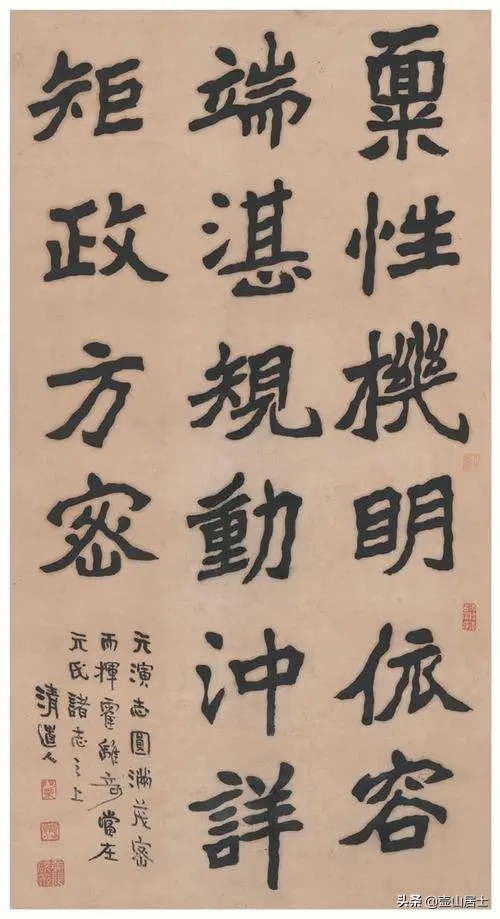 稟性機明依容
端湛規動沖詳
矩政方密
元演志圓滿茂密
而揮霍離奇當在
元氏諸志之上
清道人
头条 @壺山居士